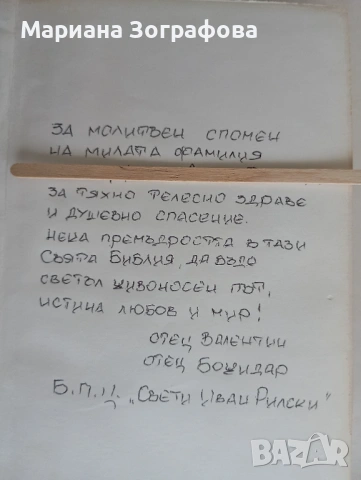 Мариана Зографова
ЗА МОЛИТВЕН СПОМЕН
НА МИЛАТА ФАМИЛИЯ
ЗА ТЯХНО ТЕЛЕСНО ЗДРАВЕ
И ДУШЕВНО СПАСЕНИЕ.
НЕКА ПРЕМЪДРОСТТА В ТАЗИ
СВЯТА БИБЛИЯ, ДА БЪДЕ
СВЕТЪЛ ЖИВОНОСЕН ПЪТ,
ИСТИНА ЛЮБОВ И МИР!
ОТЕЦ ВАЛЕНТИН
ОТЕЦ БОЖИДАР
Б.П.Ц. „СВЕТИ ИВАН РИЛСКИ"
BAZAR